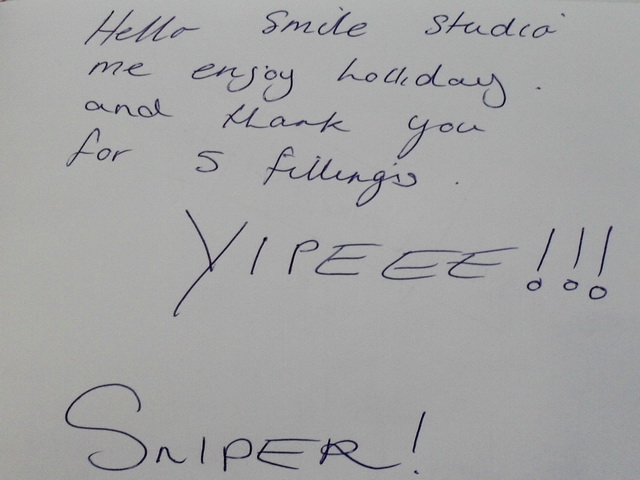 Hello Smile Studio
me enjoy holliday.
and thank you
for 5 fillings.
YIPEEE!!!
SNIPER!